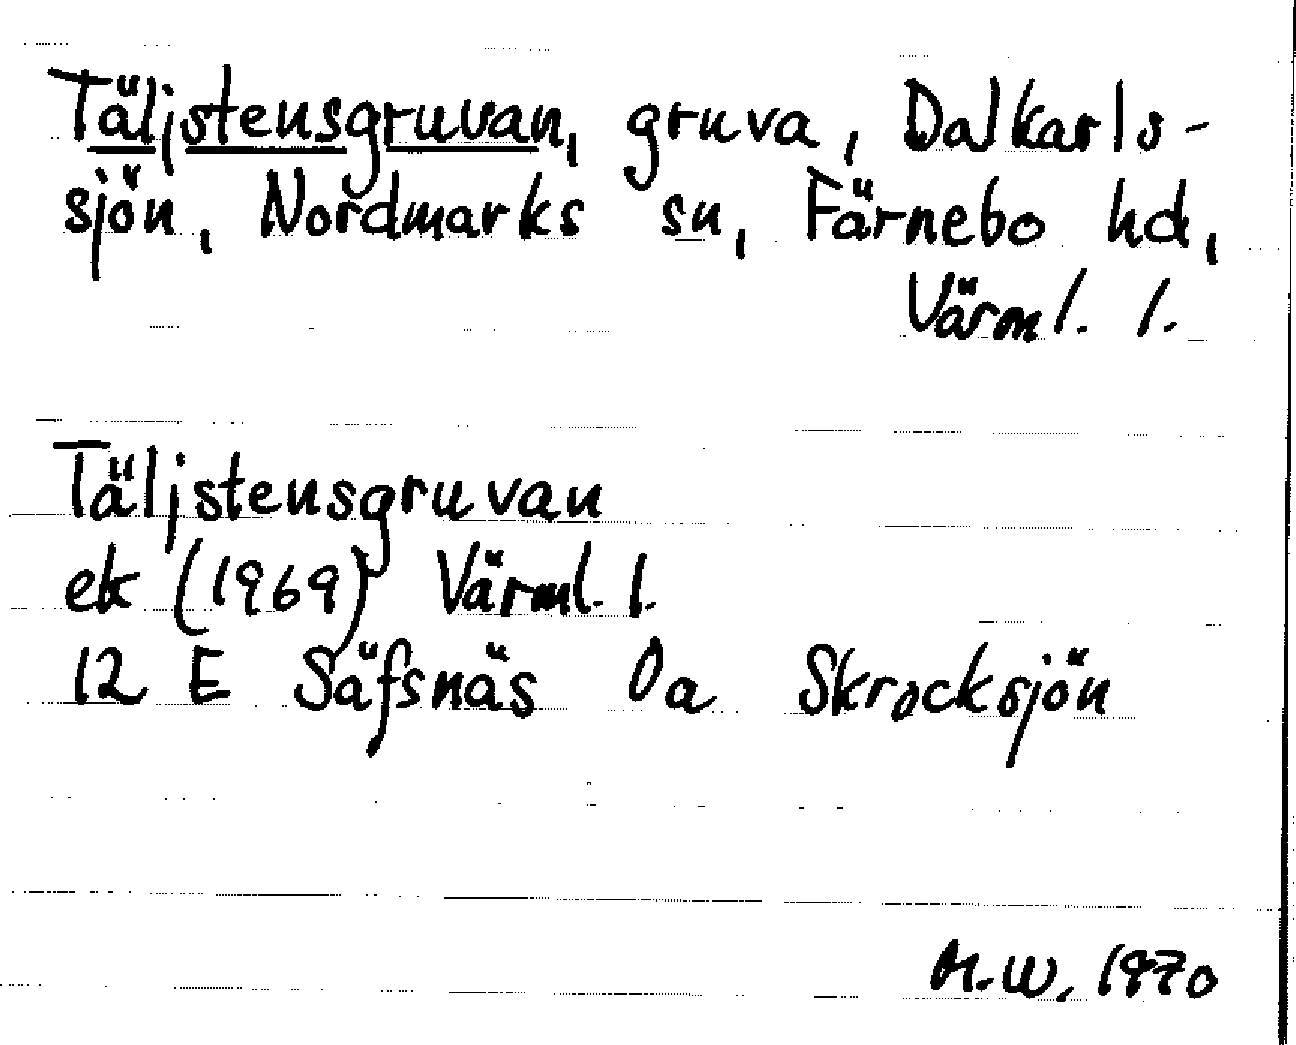 Täljstensgruvan, gruva, Dalkarls-
sjön, Nordmarks sn, Färnebo hd,
Värml. l.
Täljstensgruvan
ek (1969) Värml. l.
12 E Säfsnäs 0a Skrocksjön
M.W, 1970